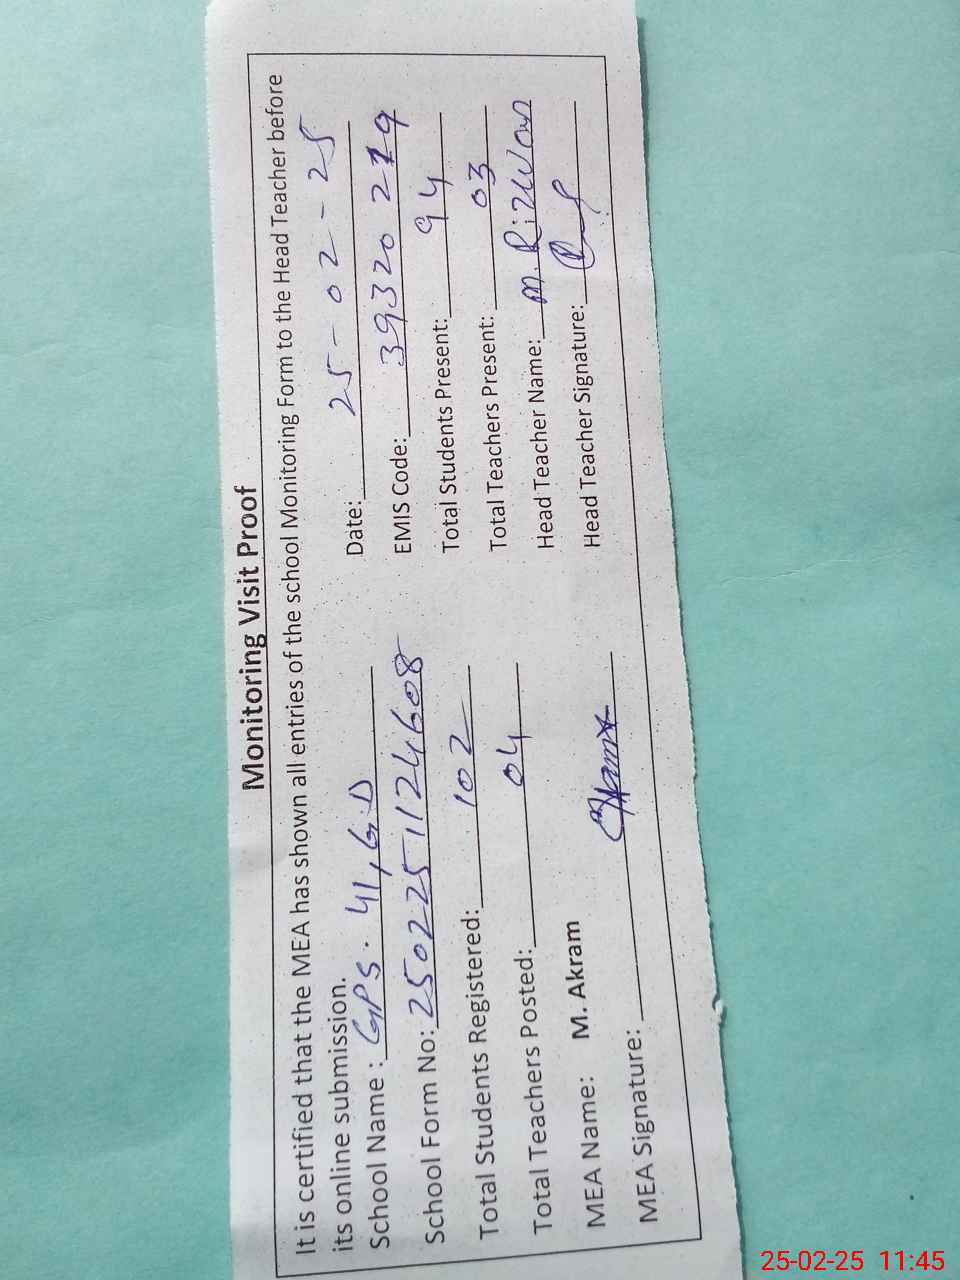 Monitoring Visit Proof
It is certified that the MEA has shown all entries of the school Monitoring Form to the Head Teacher before
its online submission.
School Name : GPS. 41, G.D Date: 25-02-25
School Form No: 2502251124608 EMIS Code: 39320219
Total Students Registered: 102 Total Students Present: 94
Total Teachers Posted: 04 Total Teachers Present: 03
MEA Name: M. Akram Head Teacher Name: M. Rizwan
MEA Signature: Head Teacher Signature:
25-02-25 11:45